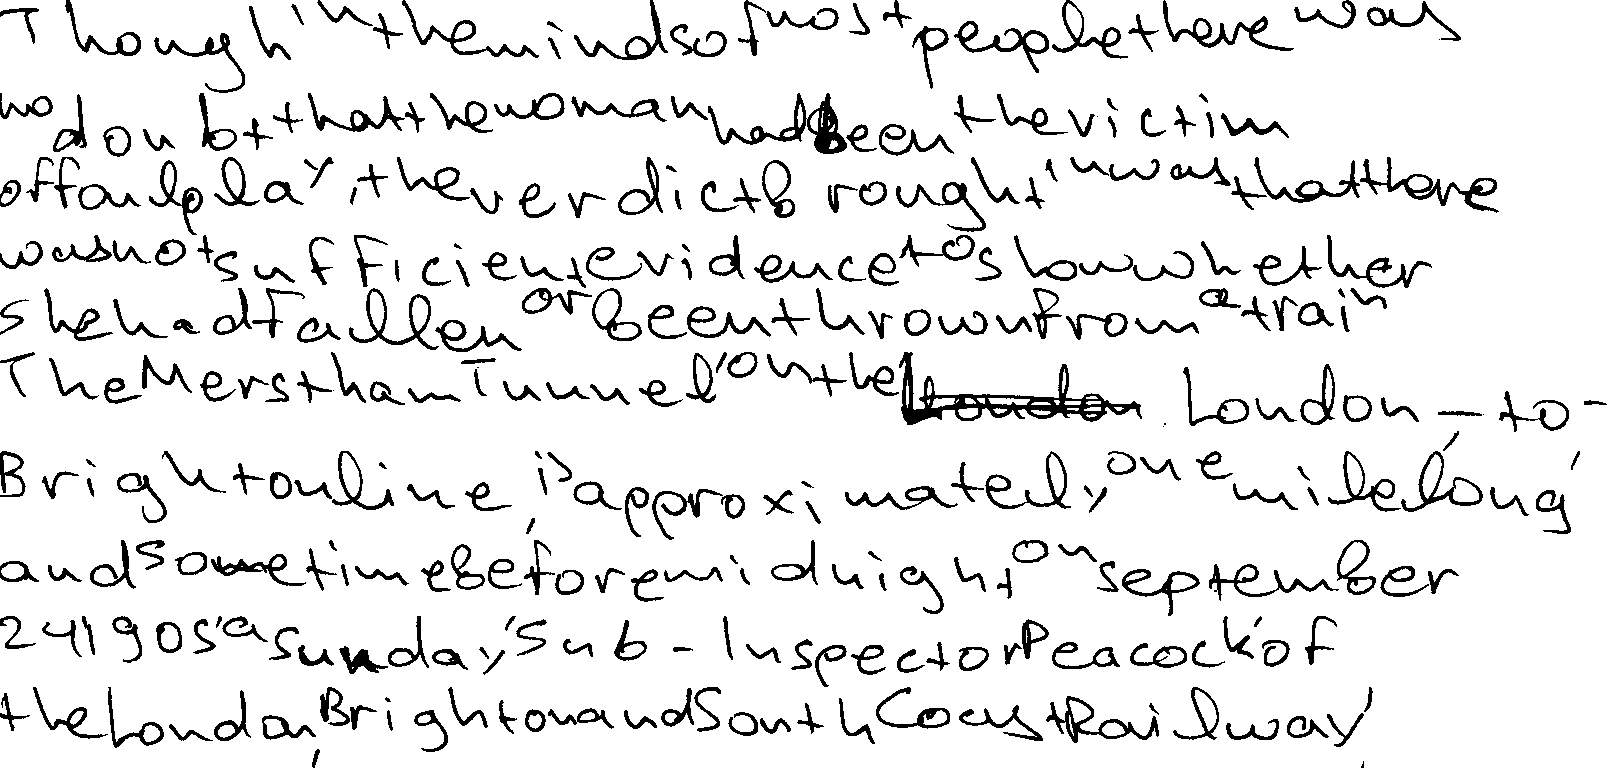 Though in the minds of most people there was
no doubt that the woman had been the victim
of foul play, the verdict brought in was that there
was not sufficient evidence to show whether
she had fallen or been thrown from a train
The Merstham Tunnel, on the London-to-
Brighton line, is approximately one mile long,
and sometime before midnight on september
24 1905, a sunday, Sub-Inspector Peacock of
the London, Brighton and South Coast Railway,